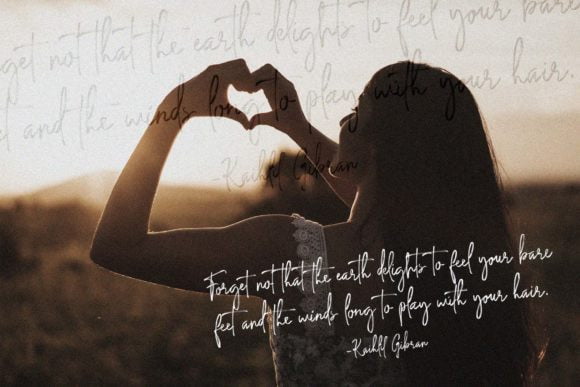 rget not that the earth delights to feel your bare
feet and the winds long to play with your hair.
-Kaihlil Gibran
Forget not that the earth delights to feel your bare
feet and the winds long to play with your hair.
-Kaihlil Gibran